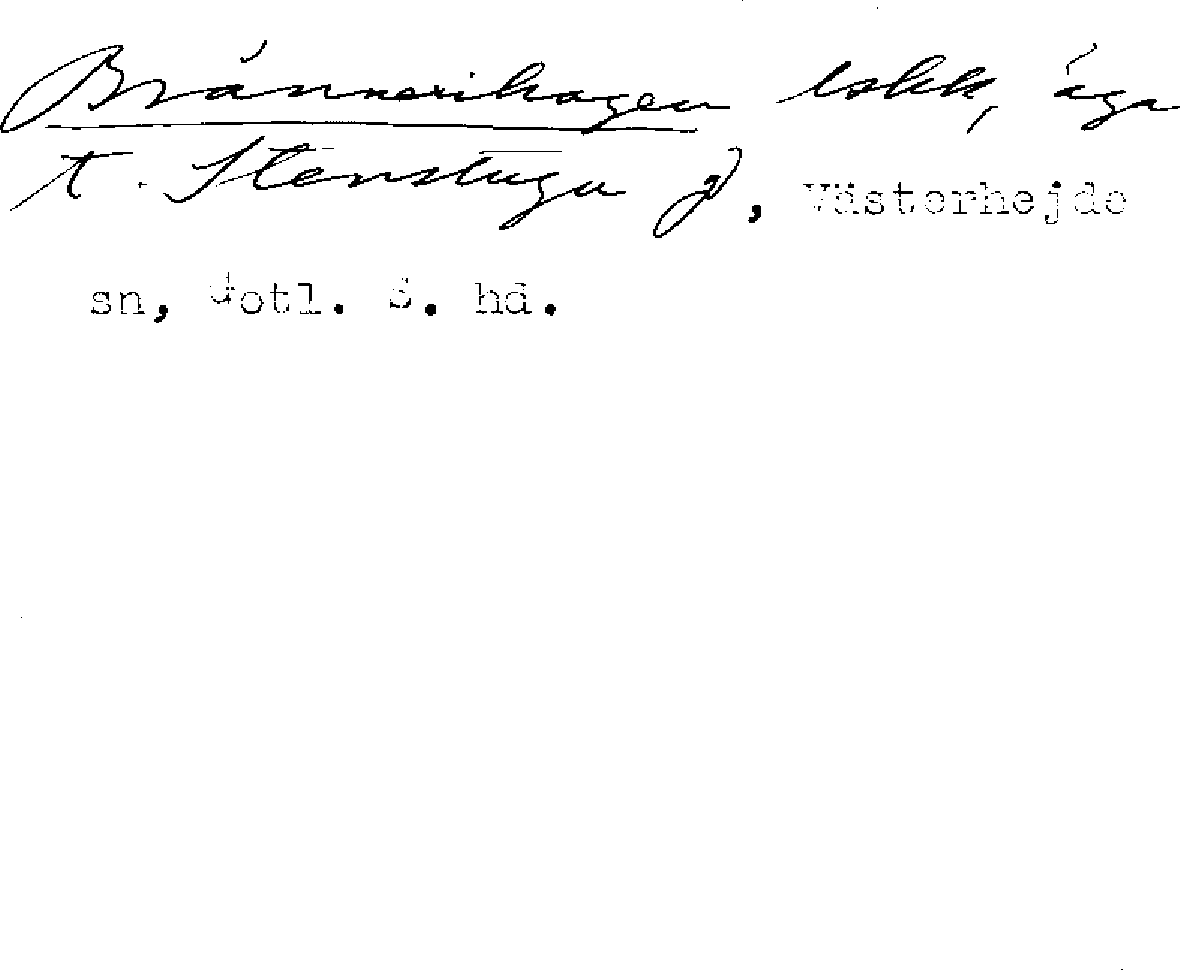 Brännerihagen åskk, äga
t. Stenstugu g, Västerhejde
sn, Gotl. S. hd.